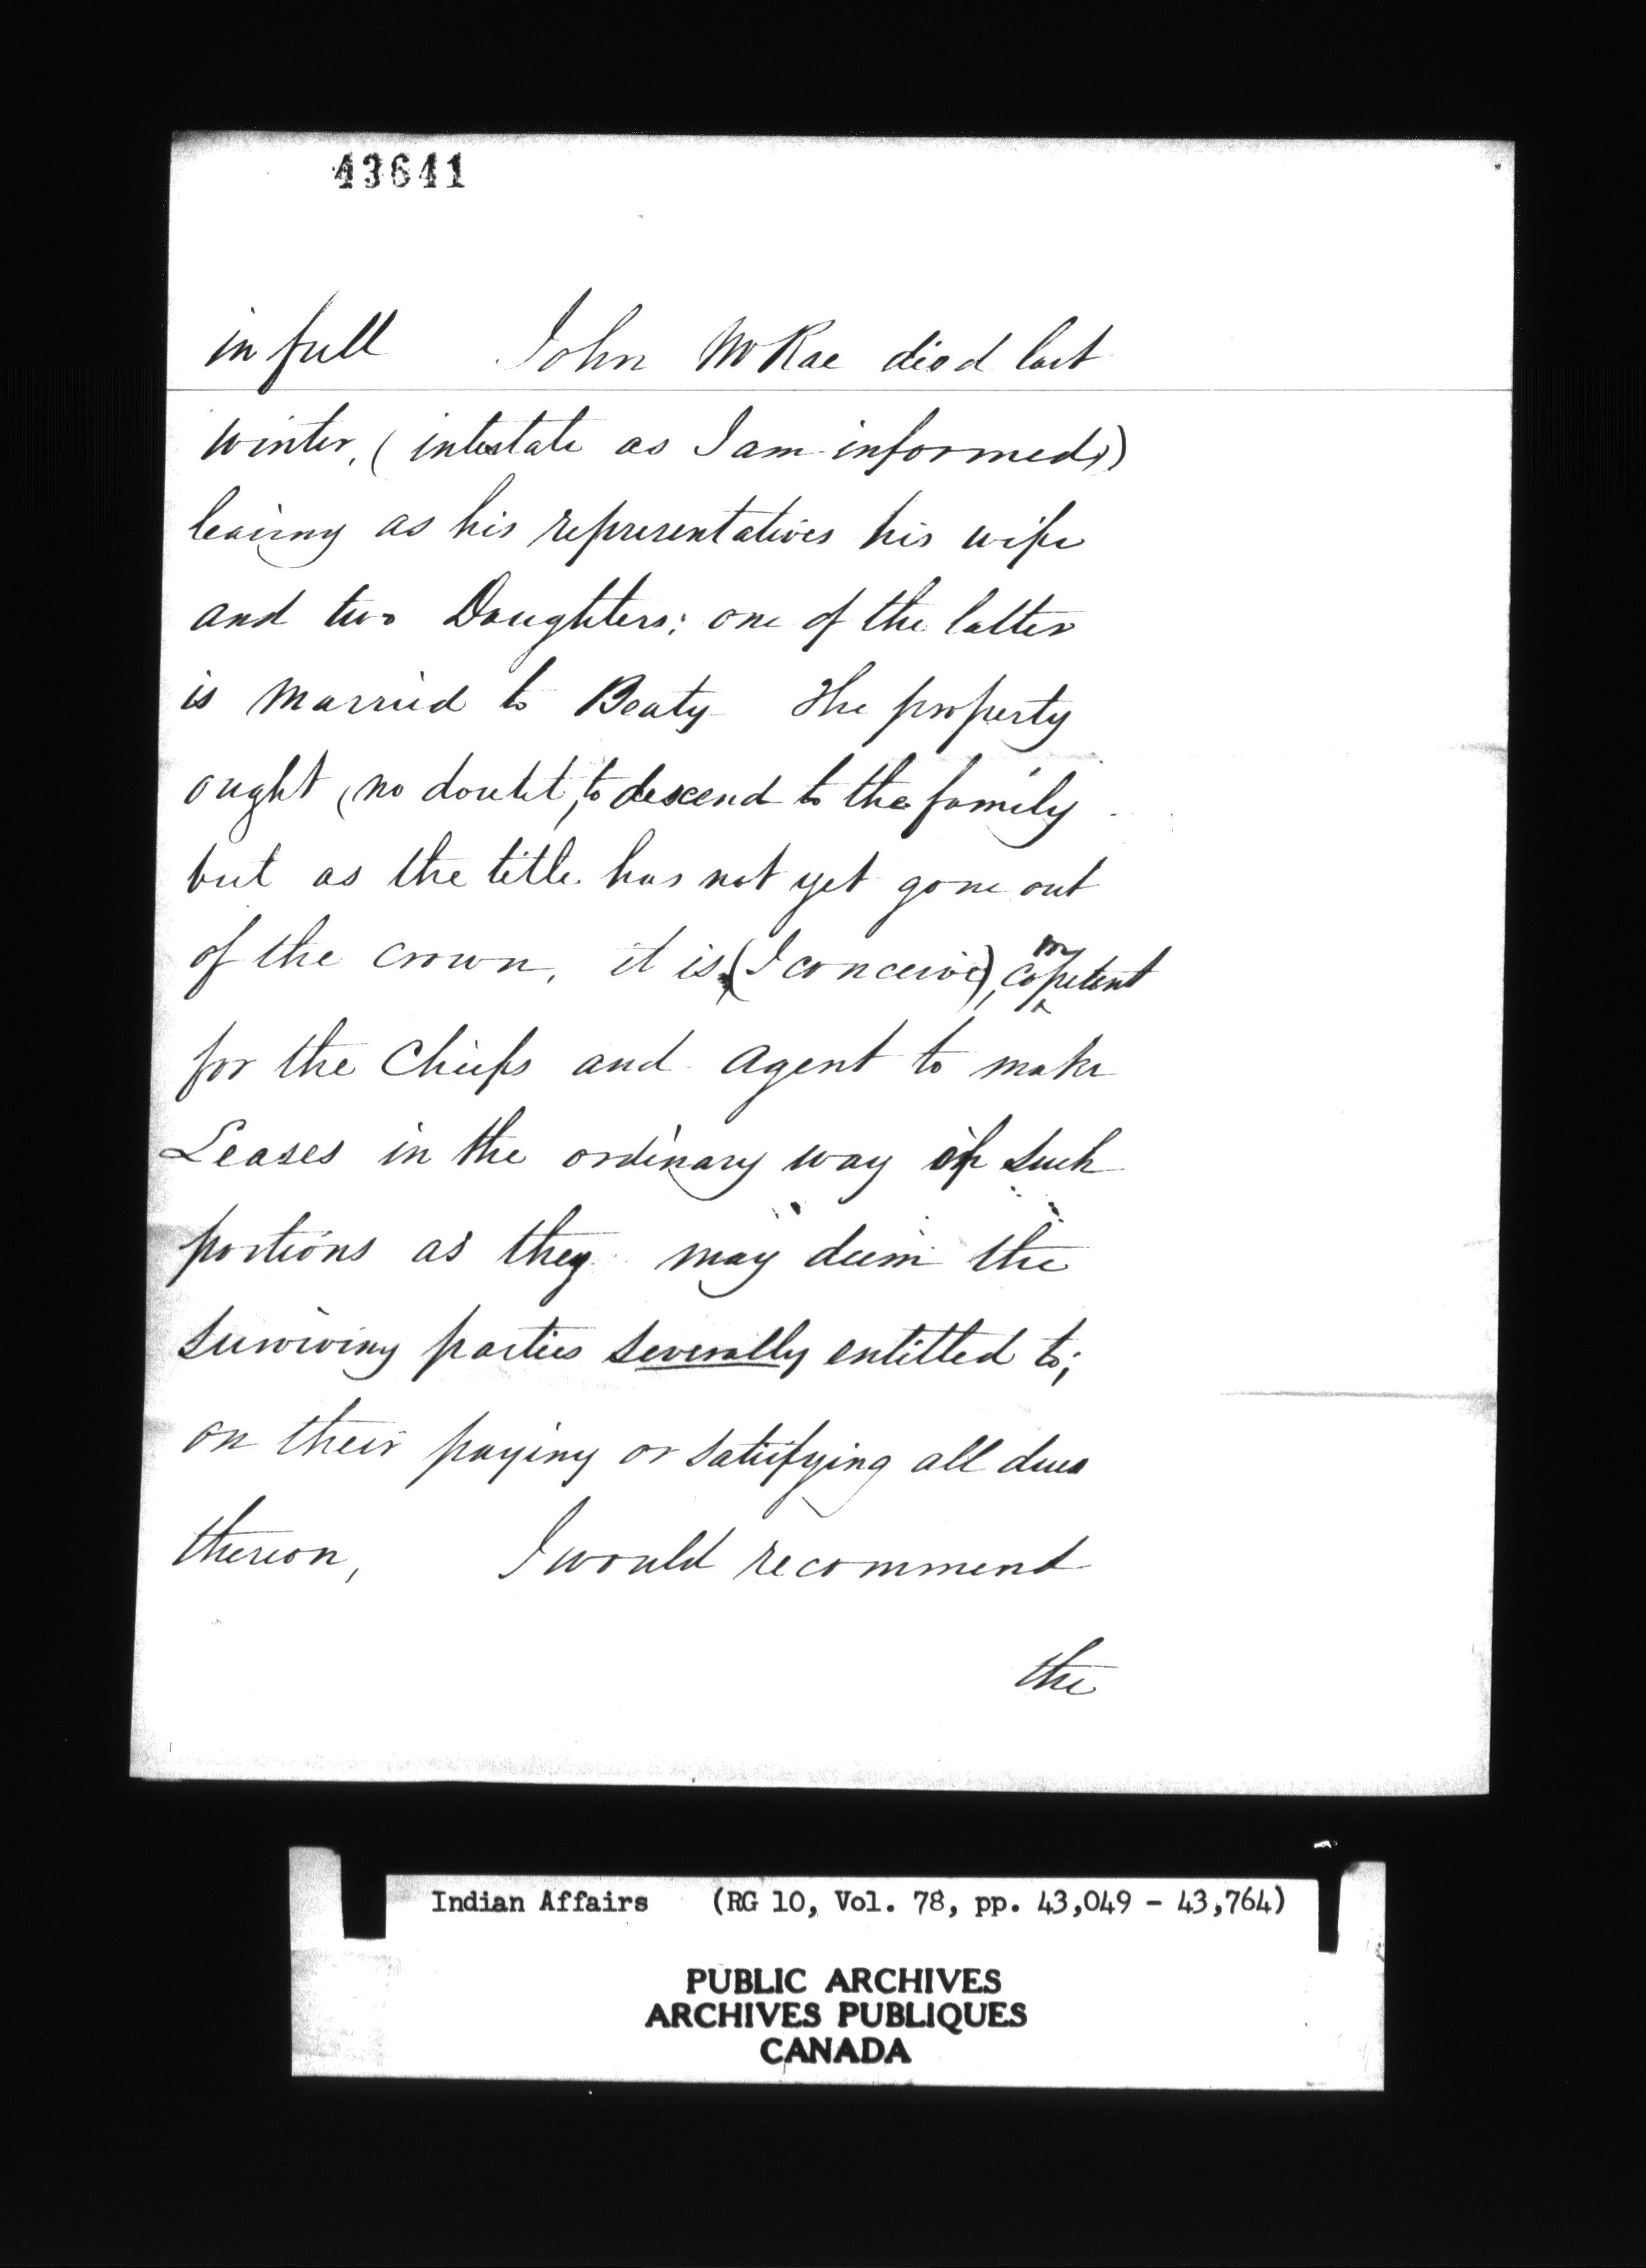 43641
in full John McRae died last
winter, (intestate as I am informed,)
leaving as his representatives his wife
and two Daughters; one of the latter
is married to Beaty The property
ought (no doubt, to descend to the family
but as the title has not yet gone out
of the Crown, it is (I conceive), competent
for the Chiefs and Agent to make
Leases in the ordinary way of such
portions as they may deem the
surviving parties severally entitled to;
on their paying or satisfying all dues
thereon, I would recommend
the
Indian Affairs (RG 10, Vol. 78, pp. 43,049 - 43,764)
PUBLIC ARCHIVES
ARCHIVES PUBLIQUES
CANADA